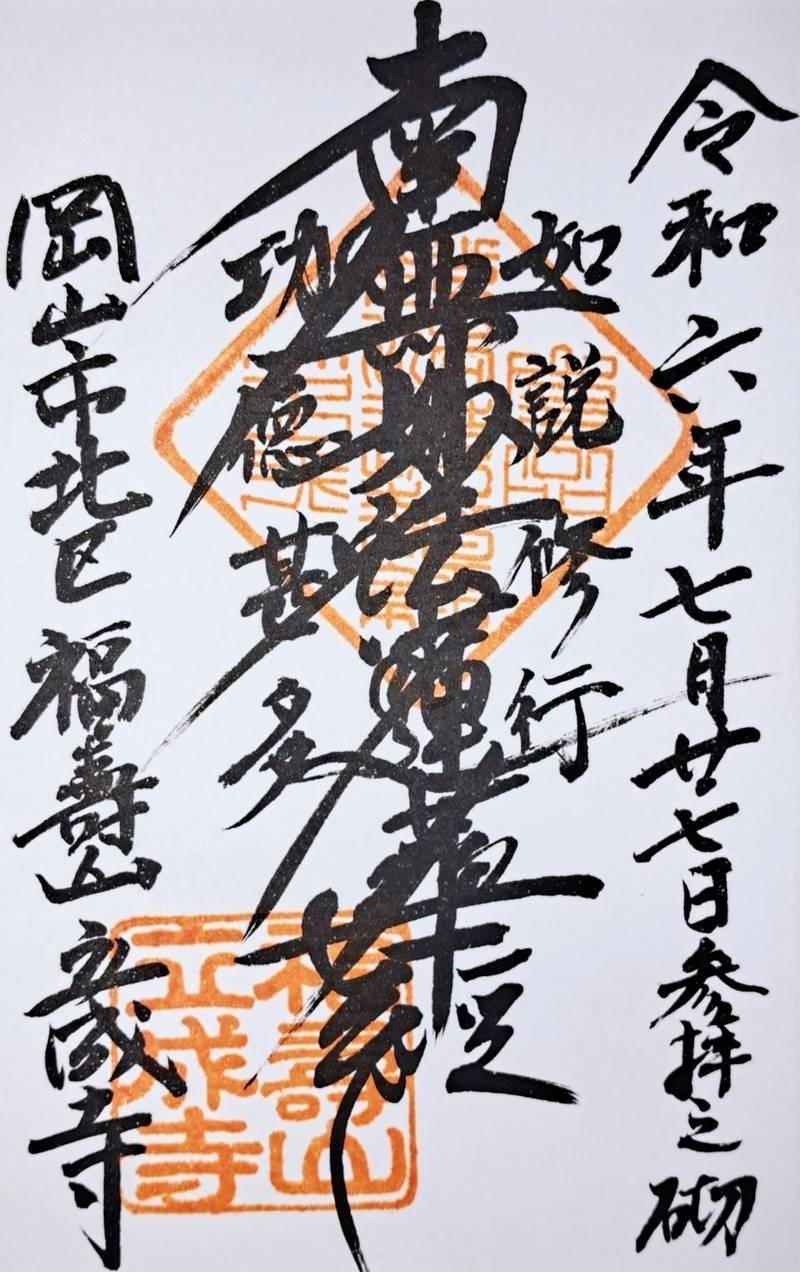 令和六年七月廿七日参拝之砌
如説修行
南無妙法蓮華経
功徳甚多
岡山市北区 福壽山 立成寺
福壽山
立成寺